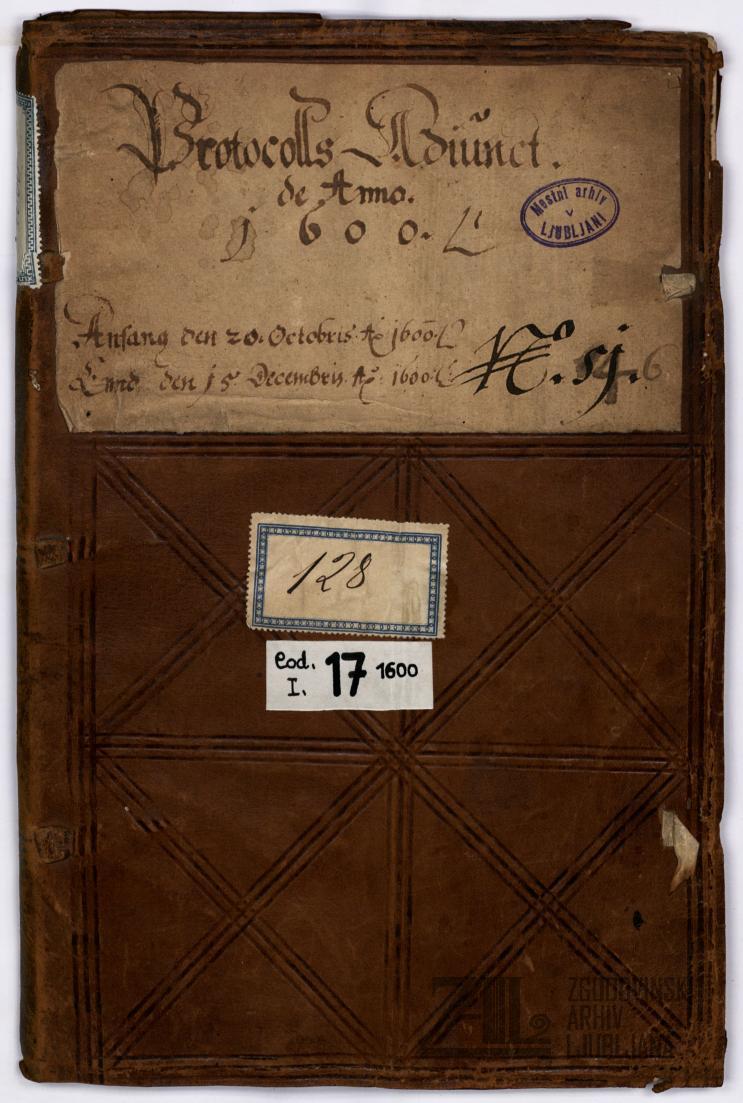 Protocolls Adiŭnct.
de Anno.
1600.
Mestni arhiv
v
LJUBLJANI
Anfang den 20. Octobris Ao 1600
Ennd den 15 Decembris Ao 1600
No. 51.
6
128
Cod.
I.
17
1600
ZGODOVINSKI
ARHIV
LJUBLJANA